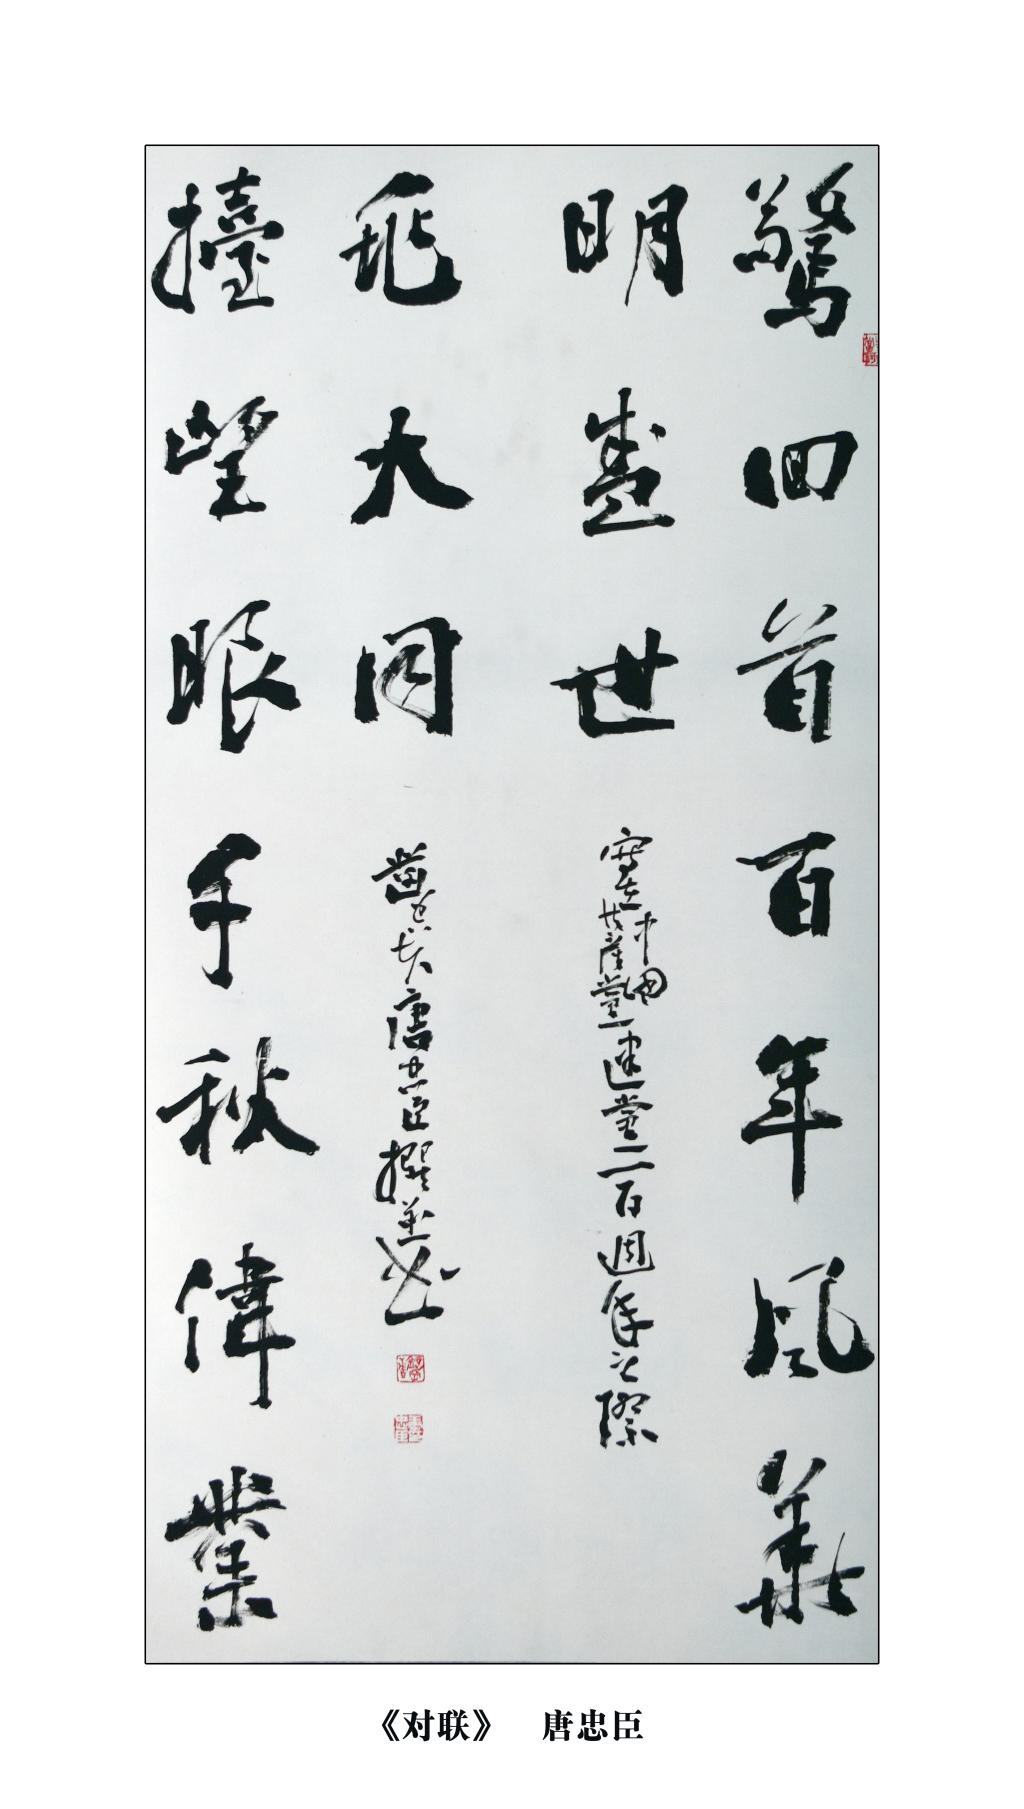 驚回首百年風華
明盛世
寫在中國共產黨建黨一百週年之際
大同
唐忠臣撰並書
擡望眼千秋偉業
《对联》 唐忠臣